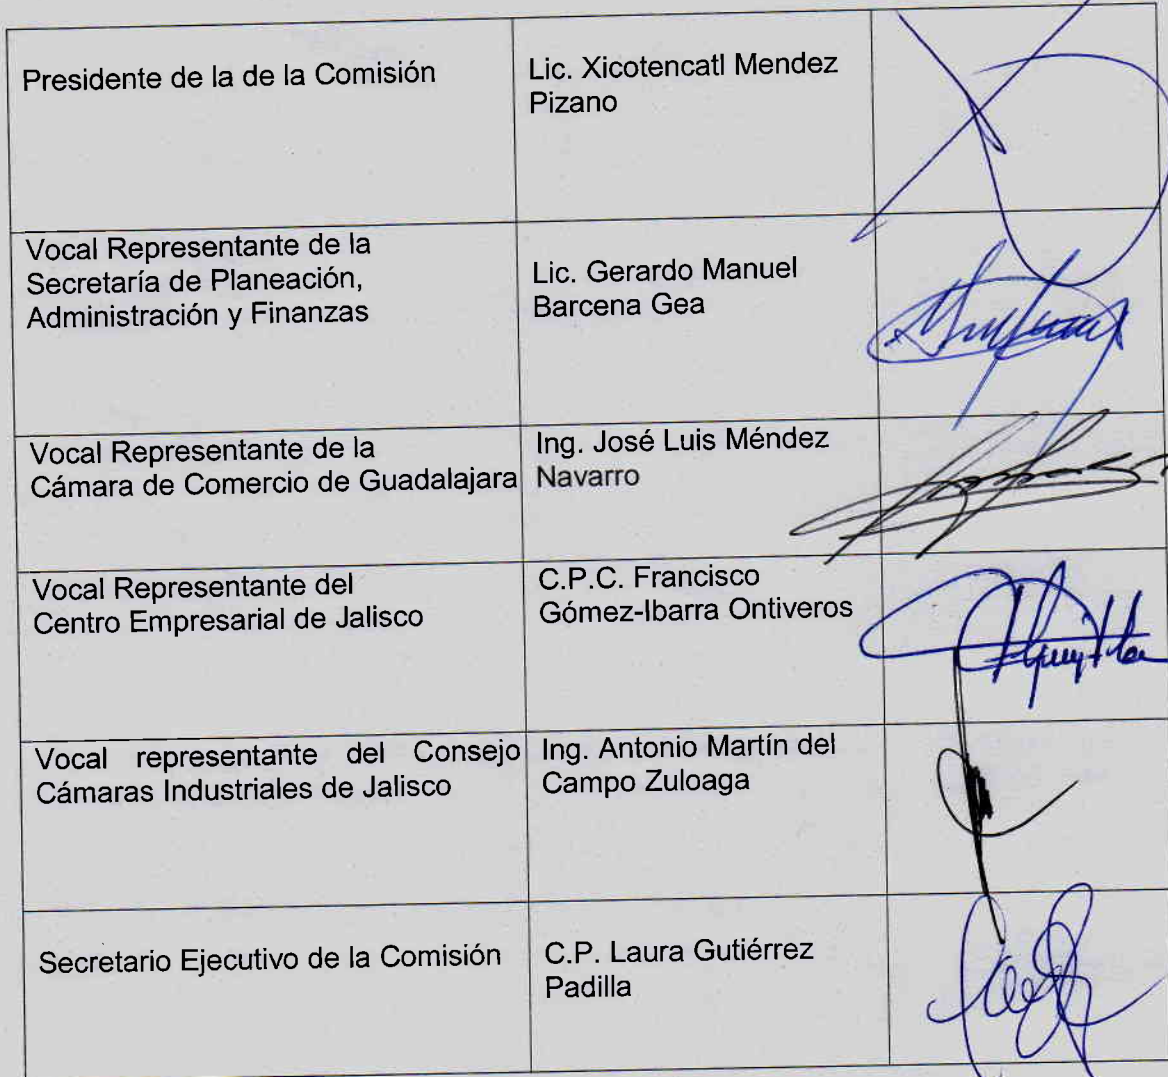 Presidente de la de la Comisión
Lic. Xicotencatl Mendez
Pizano
Vocal Representante de la
Secretaría de Planeación,
Administración y Finanzas
Lic. Gerardo Manuel
Barcena Gea
Vocal Representante de la
Cámara de Comercio de Guadalajara
Ing. José Luis Méndez
Navarro
Vocal Representante del
Centro Empresarial de Jalisco
C.P.C. Francisco
Gómez-Ibarra Ontiveros
Vocal representante del Consejo
Cámaras Industriales de Jalisco
Ing. Antonio Martín del
Campo Zuloaga
Secretario Ejecutivo de la Comisión
C.P. Laura Gutiérrez
Padilla